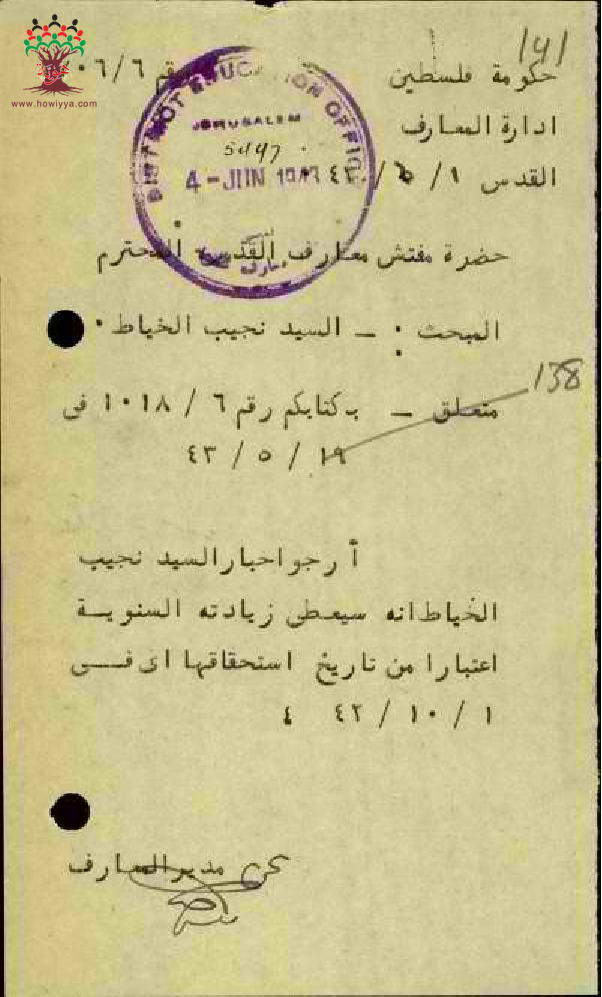 141
www.howiyya.com
حكومة فلسطين
ادارة المعارف
القدس ١ / ٦ / ٤٣
DISTRICT EDUCATION OFFICE
JERUSALEM
5447
4-JUN 1943
حضرة مفتش معارف القدس المحترم
المبحث : ـ السيد نجيب الخياط ٠
138
متعلق ـ بكتابكم رقم ٦ / ١٠١٨ فى
١٩ / ٥ / ٤٣
أرجو اخبار السيد نجيب
الخياط انه سيعطى زيادته السنوية
اعتبارا من تاريخ استحقاقها اى فى
١ / ١٠ / ٤٢ ٤
عن مدير المعارف